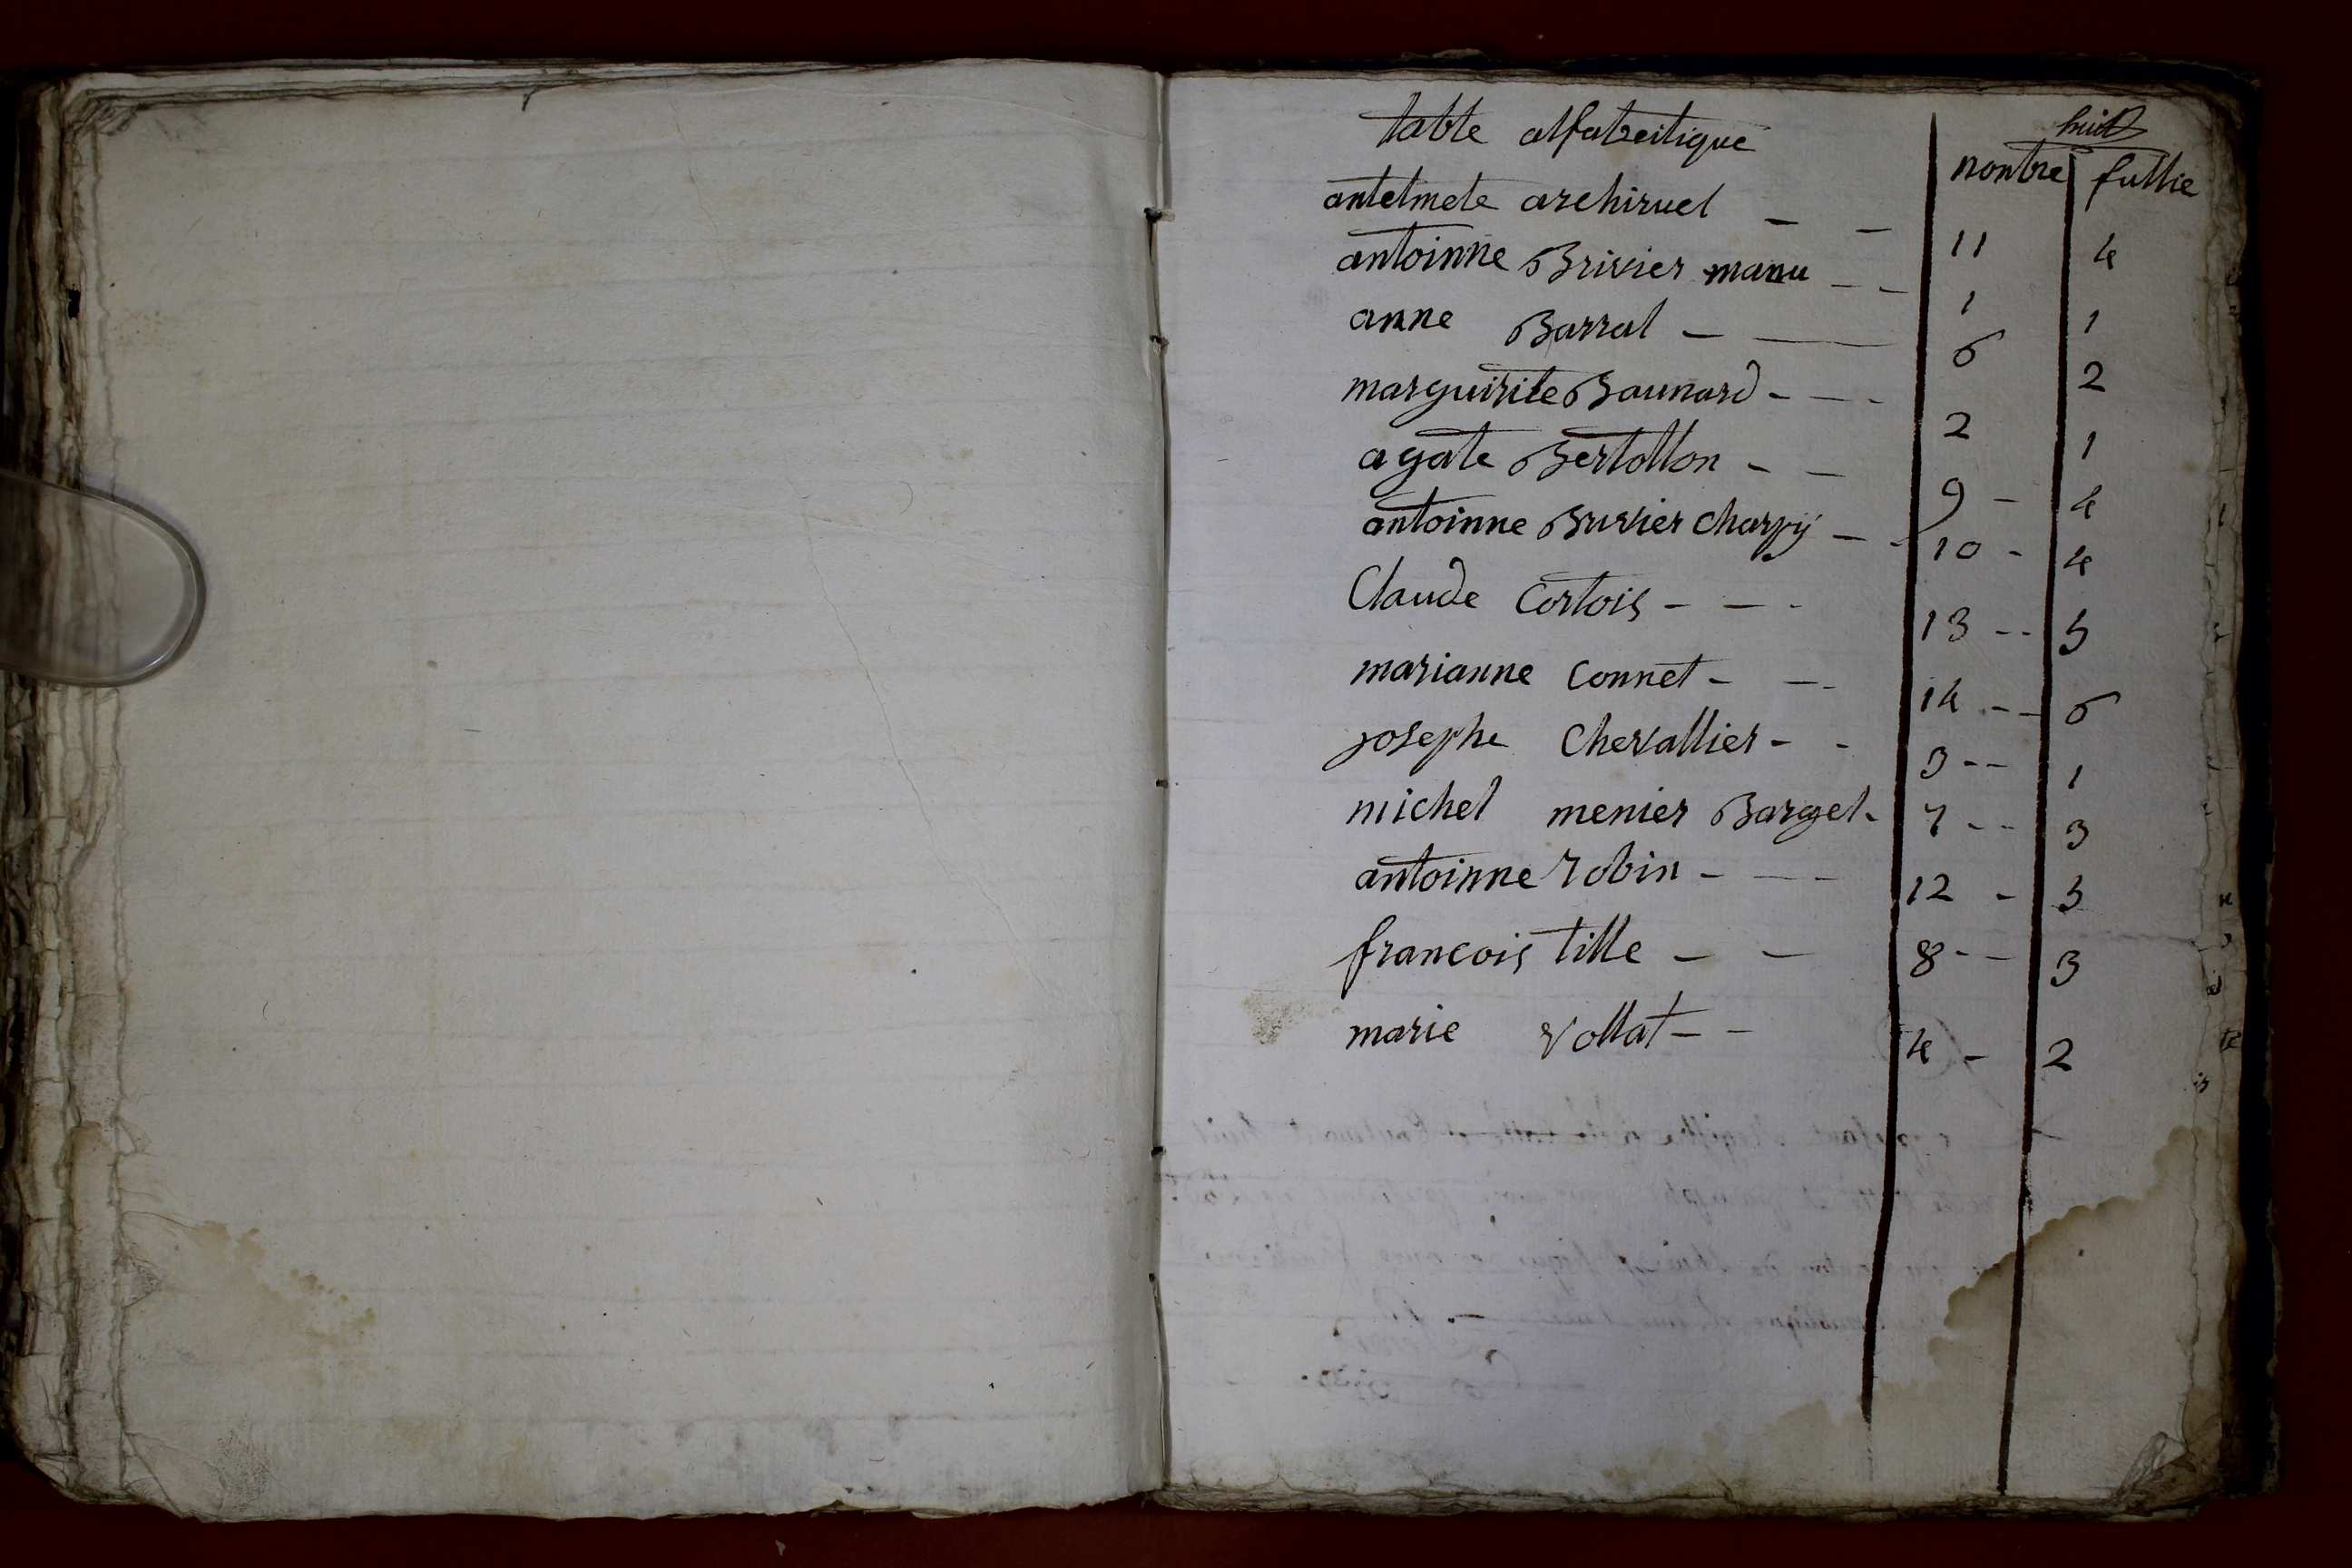 huit
table alfabeitique nontre fullie
antelmete archiruel - - 11 4
antoinne Brivier manu - - 1 1
anne Barral - - 6 2
marguirite Baunard - - - 2 1
agate Bertollon - - 9 - 4
antoinne Buvier Charpÿ - - 10 - 4
Claude Cortois - - - 13 -- 5
marianne Connet - -- 14 -- 6
josephe Chevallier - - 3 -- 1
michel menier Bargel - 7 -- 3
antoinne robin - -- 12 - 5
francois tille - - 8 -- 3
marie vollat - - 4 - 2